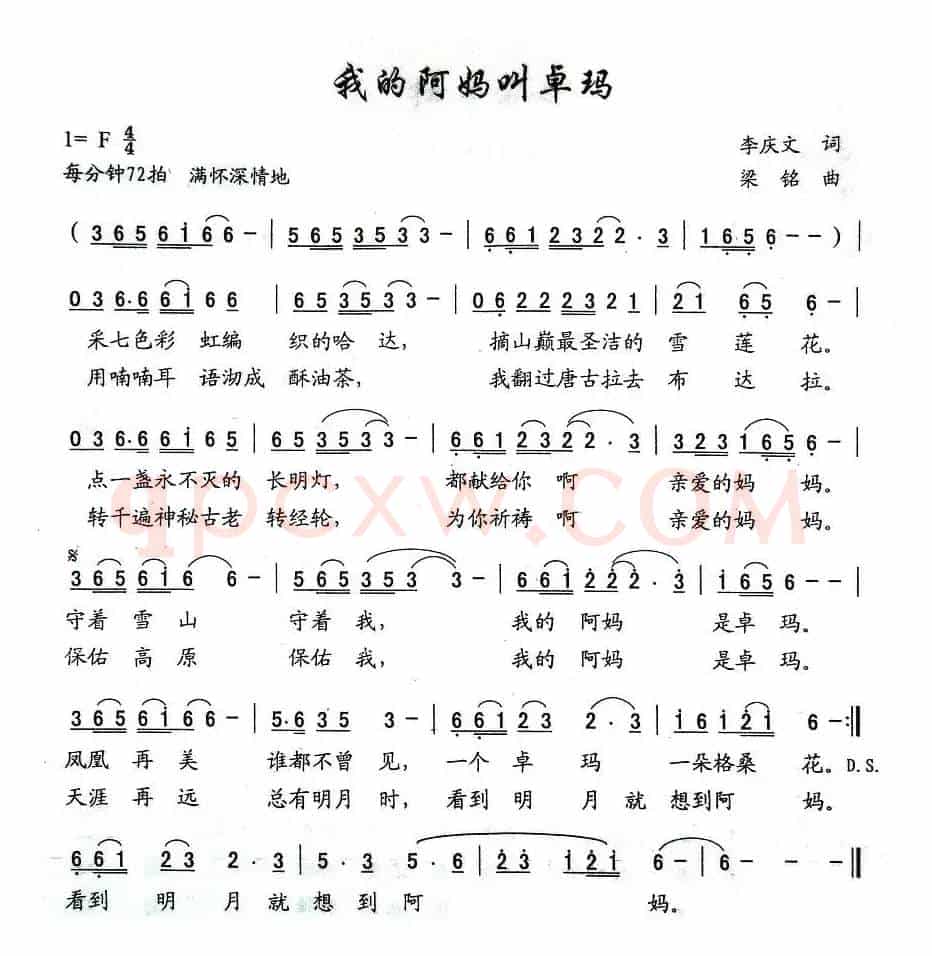 我的阿妈叫卓玛
1= F 4/4
李庆文 词
每分钟72拍 满怀深情地
梁 铭 曲
( 3 6 5 6 i 6 6 - | 5 6 5 3 5 3 3 - | 6 6 1 2 3 2 2 · 3 | 1 6 5 6 - - ) |
0 3 6 · 6 6 i 6 6 | 6 5 3 5 3 3 - | 0 6 2 2 2 3 2 1 | 2 1 6 5 6 - |
采七色彩 虹编 织的哈 达， 摘山巅最圣洁的 雪 莲 花。
用喃喃耳 语沏成 酥油茶， 我翻过唐古拉去 布 达 拉。
0 3 6 · 6 6 i 6 5 | 6 5 3 5 3 3 - | 6 6 1 2 3 2 2 · 3 | 3 2 3 1 6 5 6 - |
点一盏永不灭的 长明灯， 都献给你 啊 亲爱的妈 妈。
转千遍神秘古老 转经轮， 为你祈祷 啊 亲爱的妈 妈。
qpcxw.COM
3 6 5 6 i 6 6 - | 5 6 5 3 5 3 3 - | 6 6 i 2 2 2 · 3 | i 6 5 6 - - |
守着 雪 山 守着 我， 我的 阿妈 是卓 玛。
保佑 高 原 保佑 我， 我的 阿妈 是卓 玛。
3 6 5 6 i 6 6 - | 5 · 6 3 5 3 - | 6 6 1 2 3 2 · 3 | i 6 i 2 i 6 - :||
凤凰 再 美 谁都不曾 见， 一个 卓 玛 一朵格桑 花。D.S.
天涯 再 远 总有明月 时， 看到 明 月 就 想到阿 妈。
6 6 1 2 3 2 · 3 | 5 · 3 5 · 6 | 2 3 i 2 i 6 - | 6 - - - ||
看到 明 月 就 想 到 阿 妈。